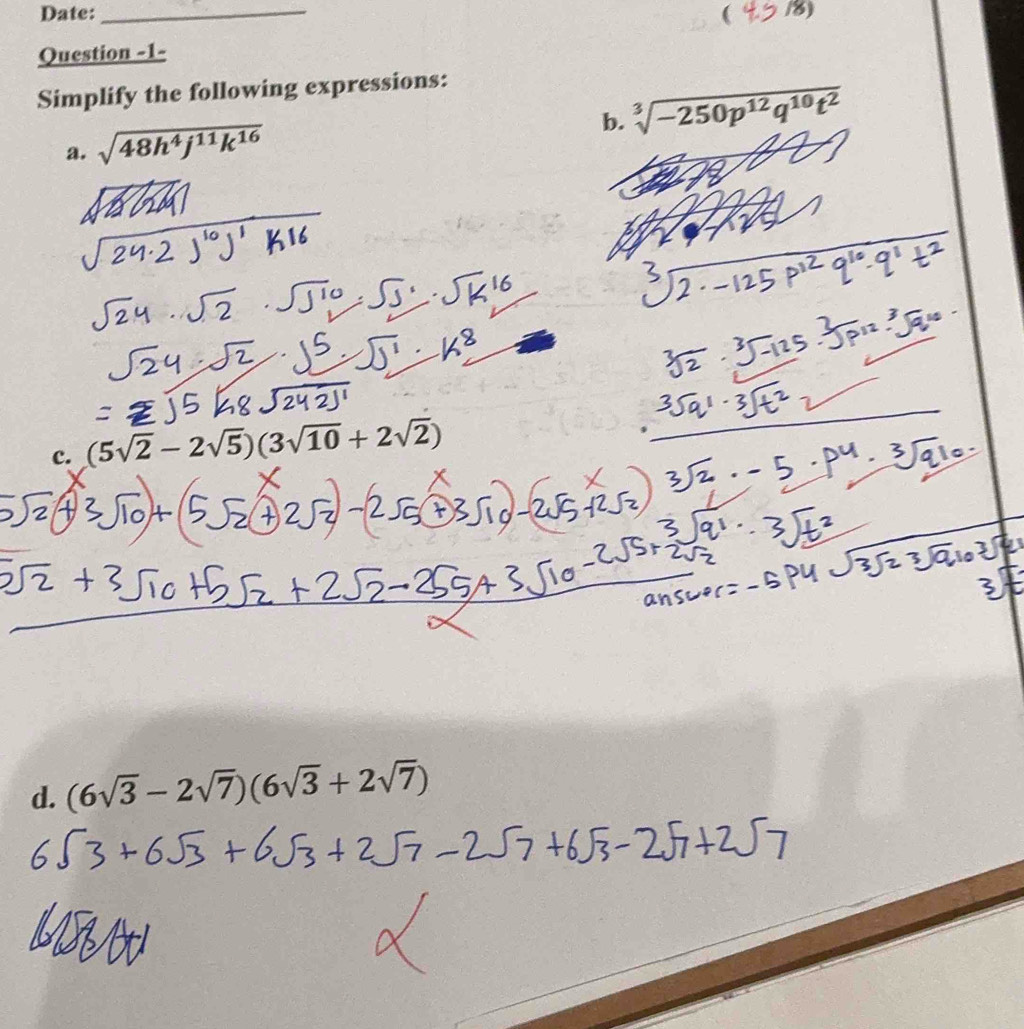 Date: ____________
( 4.5 /8)
Question -1-
Simplify the following expressions:
a. √48h⁴j¹¹k¹⁶
√24·2 J¹⁰J¹ K16
√24 · √2 · √J¹⁰ · √J¹ · √K¹⁶
√24 · √2 · J⁵ · √J¹ · K⁸
= J5 K8 √24 2J¹
b. ³√−250p¹²q¹⁰t²
³√2·−125 P¹² q¹⁰·q¹ t²
³√2 · ³√−125 · ³√P¹² · ³√q¹⁰ ·
³√q¹ · ³√t²
3√2 · − 5 · P4 · ³√q10 ·
3√q¹ · 3√t²
answer= −5P4 √3√2 3√q10 3√q1
3√t
c. (5√2 − 2√5)(3√10 + 2√2)
5√2 + 3√10) + (5√2 + 2√2) − (2√5 + 3√10) − (2√5 + 2√2)
5√2 + 3√10 + 5√2 + 2√2 − 2√5 + 3√10 − 2√5 + 2√2
d. (6√3 − 2√7)(6√3 + 2√7)
6√3 + 6√3 + 6√3 + 2√7 − 2√7 + 6√3 − 2√7 + 2√7